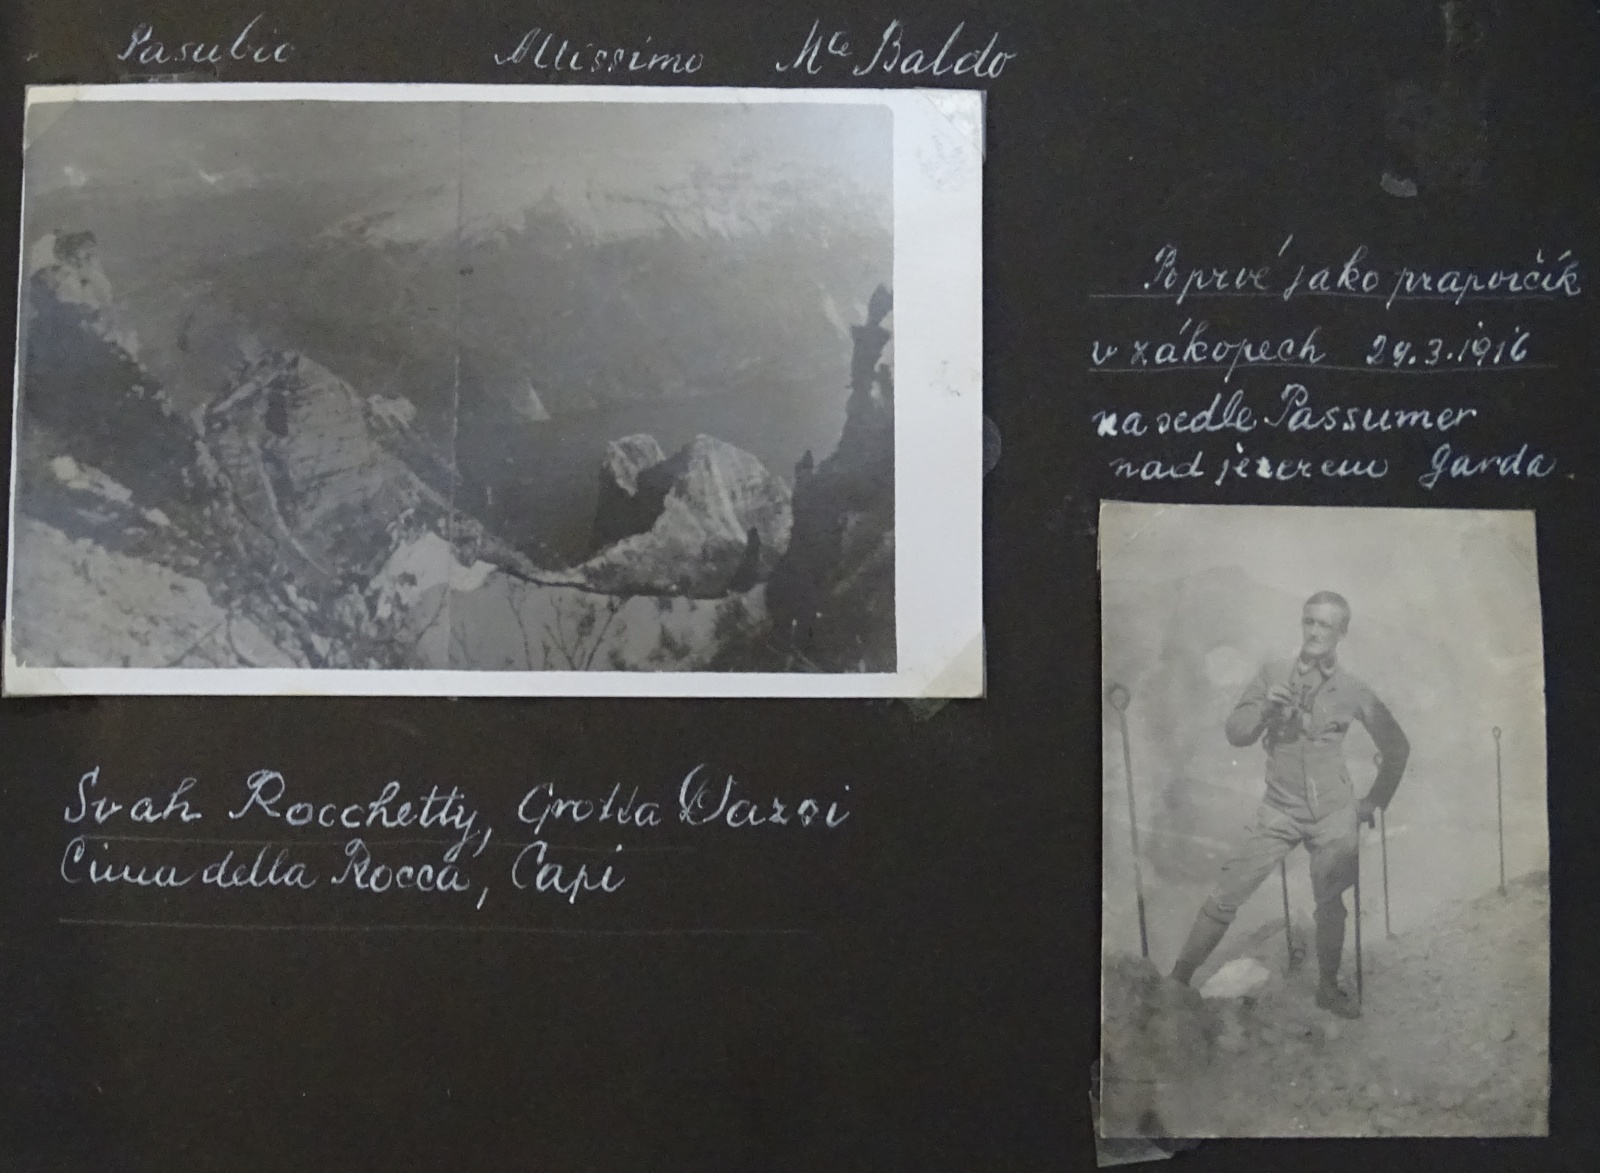 Pasubio Altissimo Mte Baldo
Poprvé jako praporčík
v zákopech 29.3.1916
na sedle Passumer
nad jezerem Garda.
Svah Rocchetty, Grotta Dazsi
Cima della Rocca, Capi